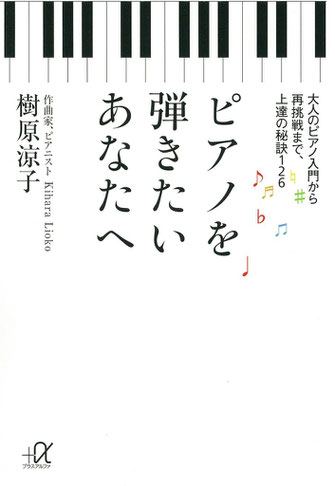 大人のピアノ入門から
再挑戦まで、
上達の秘訣126
ピアノを
弾きたい
あなたへ
作曲家、ピアニスト Kihara Lioko
樹原涼子
+α
プラスアルファ